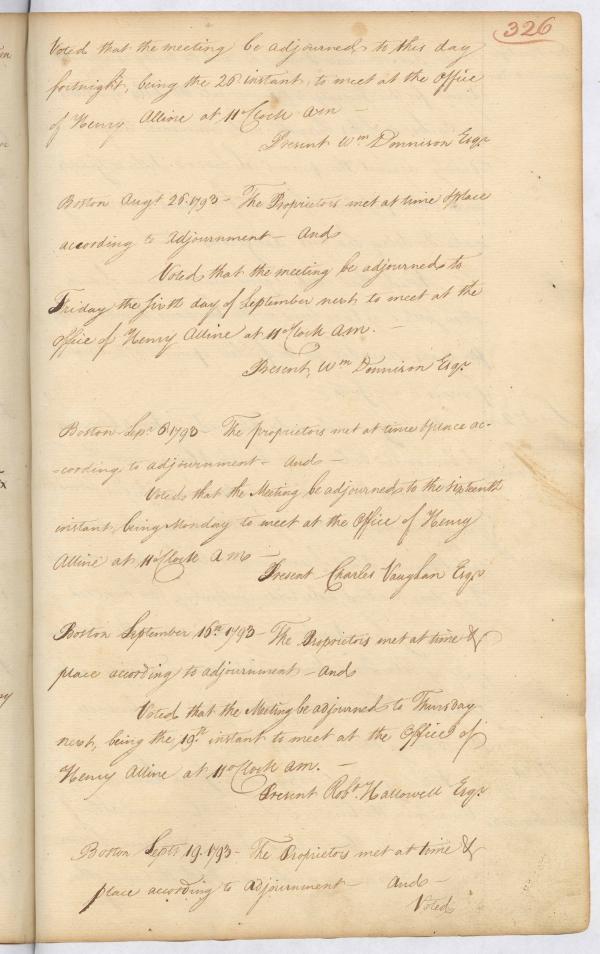 326
Voted that the meeting be adjourned to this day
fortnight, being the 26 instant, to meet at the Office
of Henry Alline at 11 oClock am —
Present Wm Donnison Esqr
Boston Augt 26. 1793 — The Proprietors met at time & place
according to Adjournment — And
Voted that the meeting be adjourned to
Friday the sixth day of September next to meet at the
Office of Henry Alline at 11 oClock am. —
Present, Wm Donnison Esqr
Boston Sepr. 6 1793 — The proprietors met at time & place ac-
-cording to adjournment — and —
Voted that the Meeting be adjourned to the sixteenth
instant, being Monday to meet at the Office of Henry
Alline at 11 oClock am —
Present Charles Vaughan Esqr
Boston September 16th 1793 — The Proprietors met at time &
place according to adjournment — and
Voted that the Meeting be adjourned to Thursday
next, being the 19th instant to meet at the Office of
Henry Alline at 11 oClock am. —
Present Robt. Hallowell Esqr
Boston Septr 19. 1793 — The Proprietors met at time &
place according to Adjournment — And —
Voted